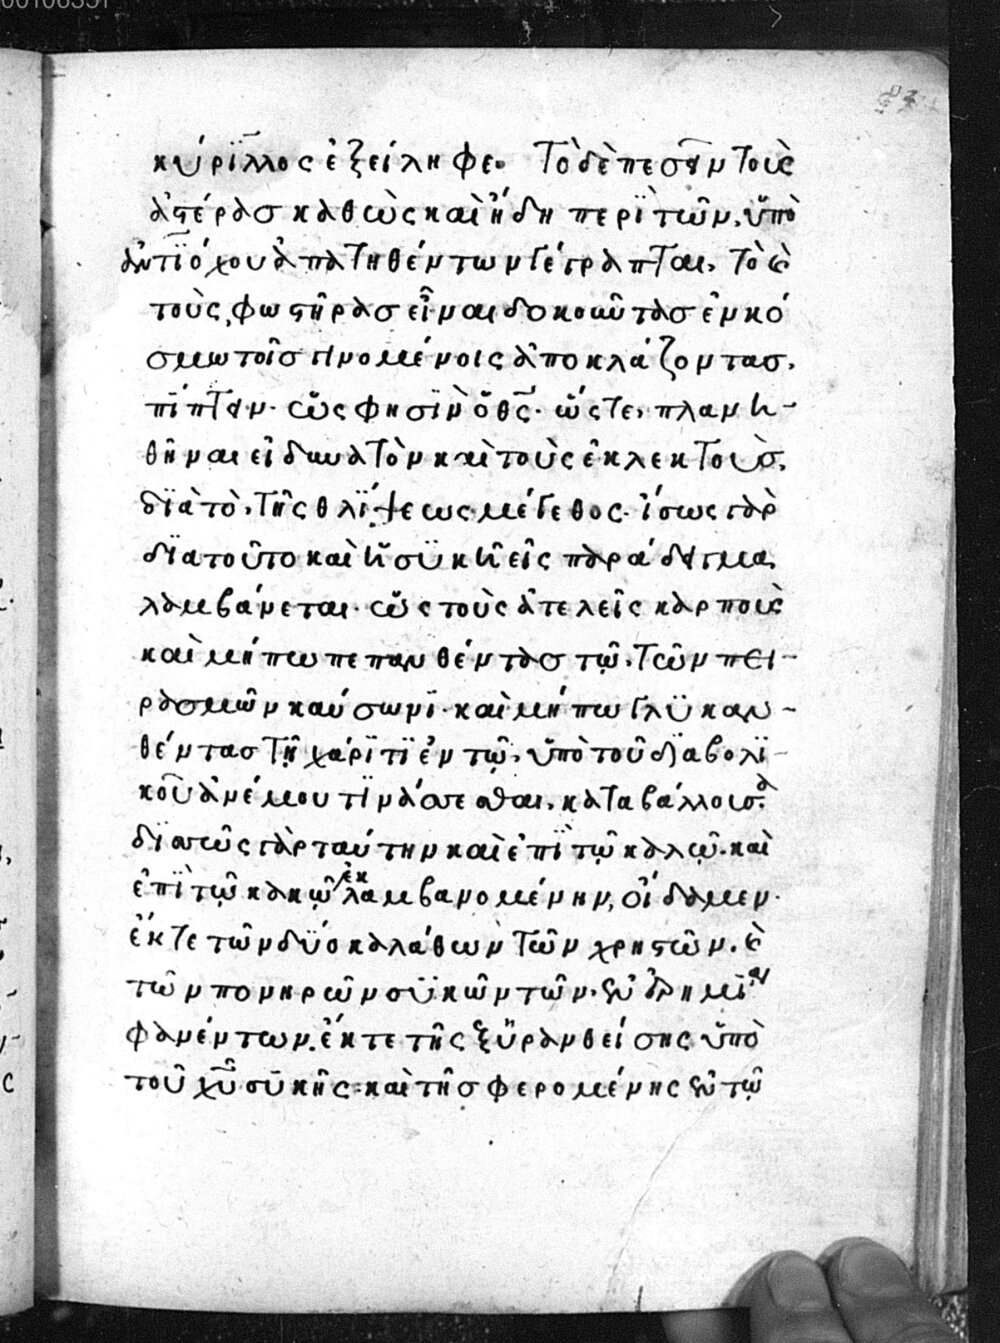 κύριλλος ἐξείληφε. Τὸ δὲ πεσεῖν τοὺς
ἀστέρας καθὼς καὶ ἤδη περὶ τῶν ὑπὸ
ἀντιόχου ἀπατηθέντων γέγραπται, τὸ καὶ
τοὺς φωστῆρας εἶναι δοκοῦντας ἐν κό
σμω τοῖς γινομένοις ἀποκλάζοντας,
πίπτειν. ὥς φησὶν ὁ θς. ὥστε, πλανη-
θῆναι εἰ δυνατὸν καὶ τοὺς ἐκλεκτοὺς,
διὰ τὸ, τῆς θλίψεως μέγεθος. ἴσως γὰρ
διατοῦτο καὶ ἡ συκῆ εἰς παράδειγμα
λαμβάνεται. ὡς τοὺς ἀτελεῖς καρποὺς
καὶ μήπω πεπανθέντας τῷ, τῶν πει-
ρασμῶν καύσωνι. καὶ μήπω γλυκαν-
θέντας τῇ χάριτι ἐν τῷ, ὑπὸ τοῦ διαβολι-
κοῦ ἀνέμου τινάσσεσθαι, καταβάλλουσα.
δισσῶς γὰρ ταύτην καὶ ἐπὶ τῷ καλῷ. καὶ
ἐπὶ τῷ κακῷ ἐκλαμβανομένην, οἴδαμεν.
ἔκ τε τῶν δύο καλάθων τῶν χρηστῶν. καὶ
τῶν πονηρῶν συκῶν τῶν ἐν ἱερημία
φανέντων. ἔκ τε τῆς ξηρανθείσης ὑπὸ
τοῦ χυ συκῆς. καὶ τῆς φερομένης ἐν τῷ